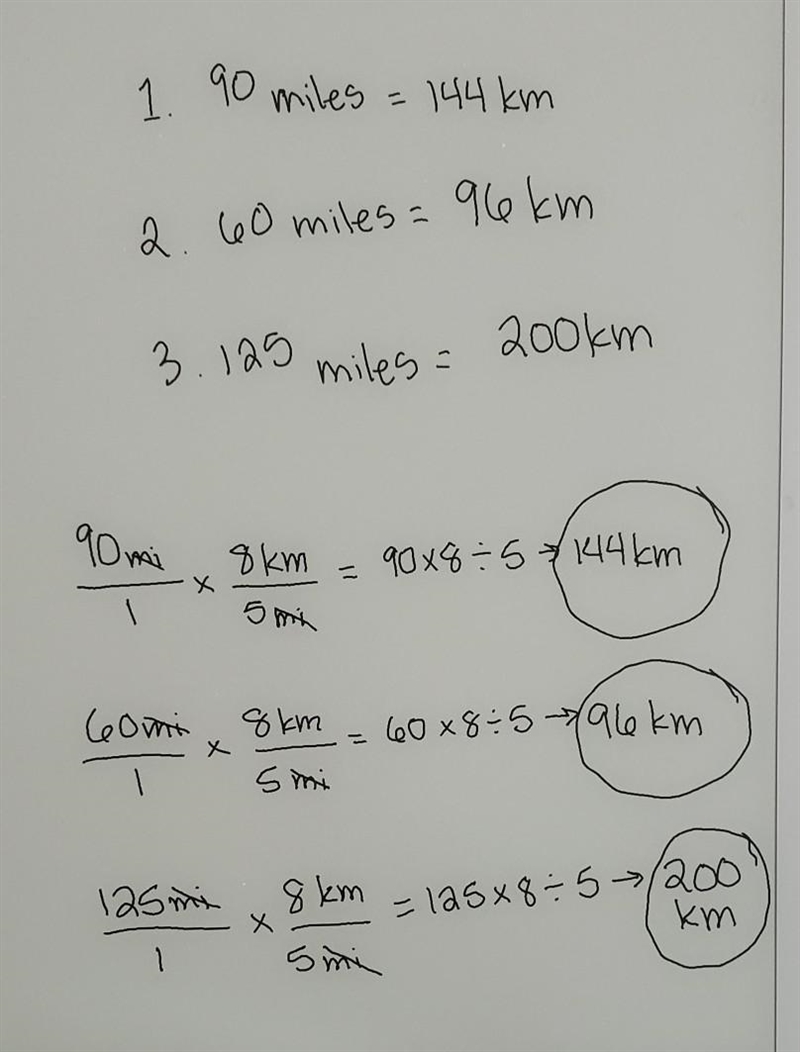 1. 90 miles = 144 km
2. 60 miles = 96 km
3. 125 miles = 200km
90mi/1 × 8km/5mi = 90×8÷5 → 144km
60mi/1 × 8km/5mi = 60×8÷5 → 96 km
125mi/1 × 8 km/5mi = 125×8÷5 → 200 km